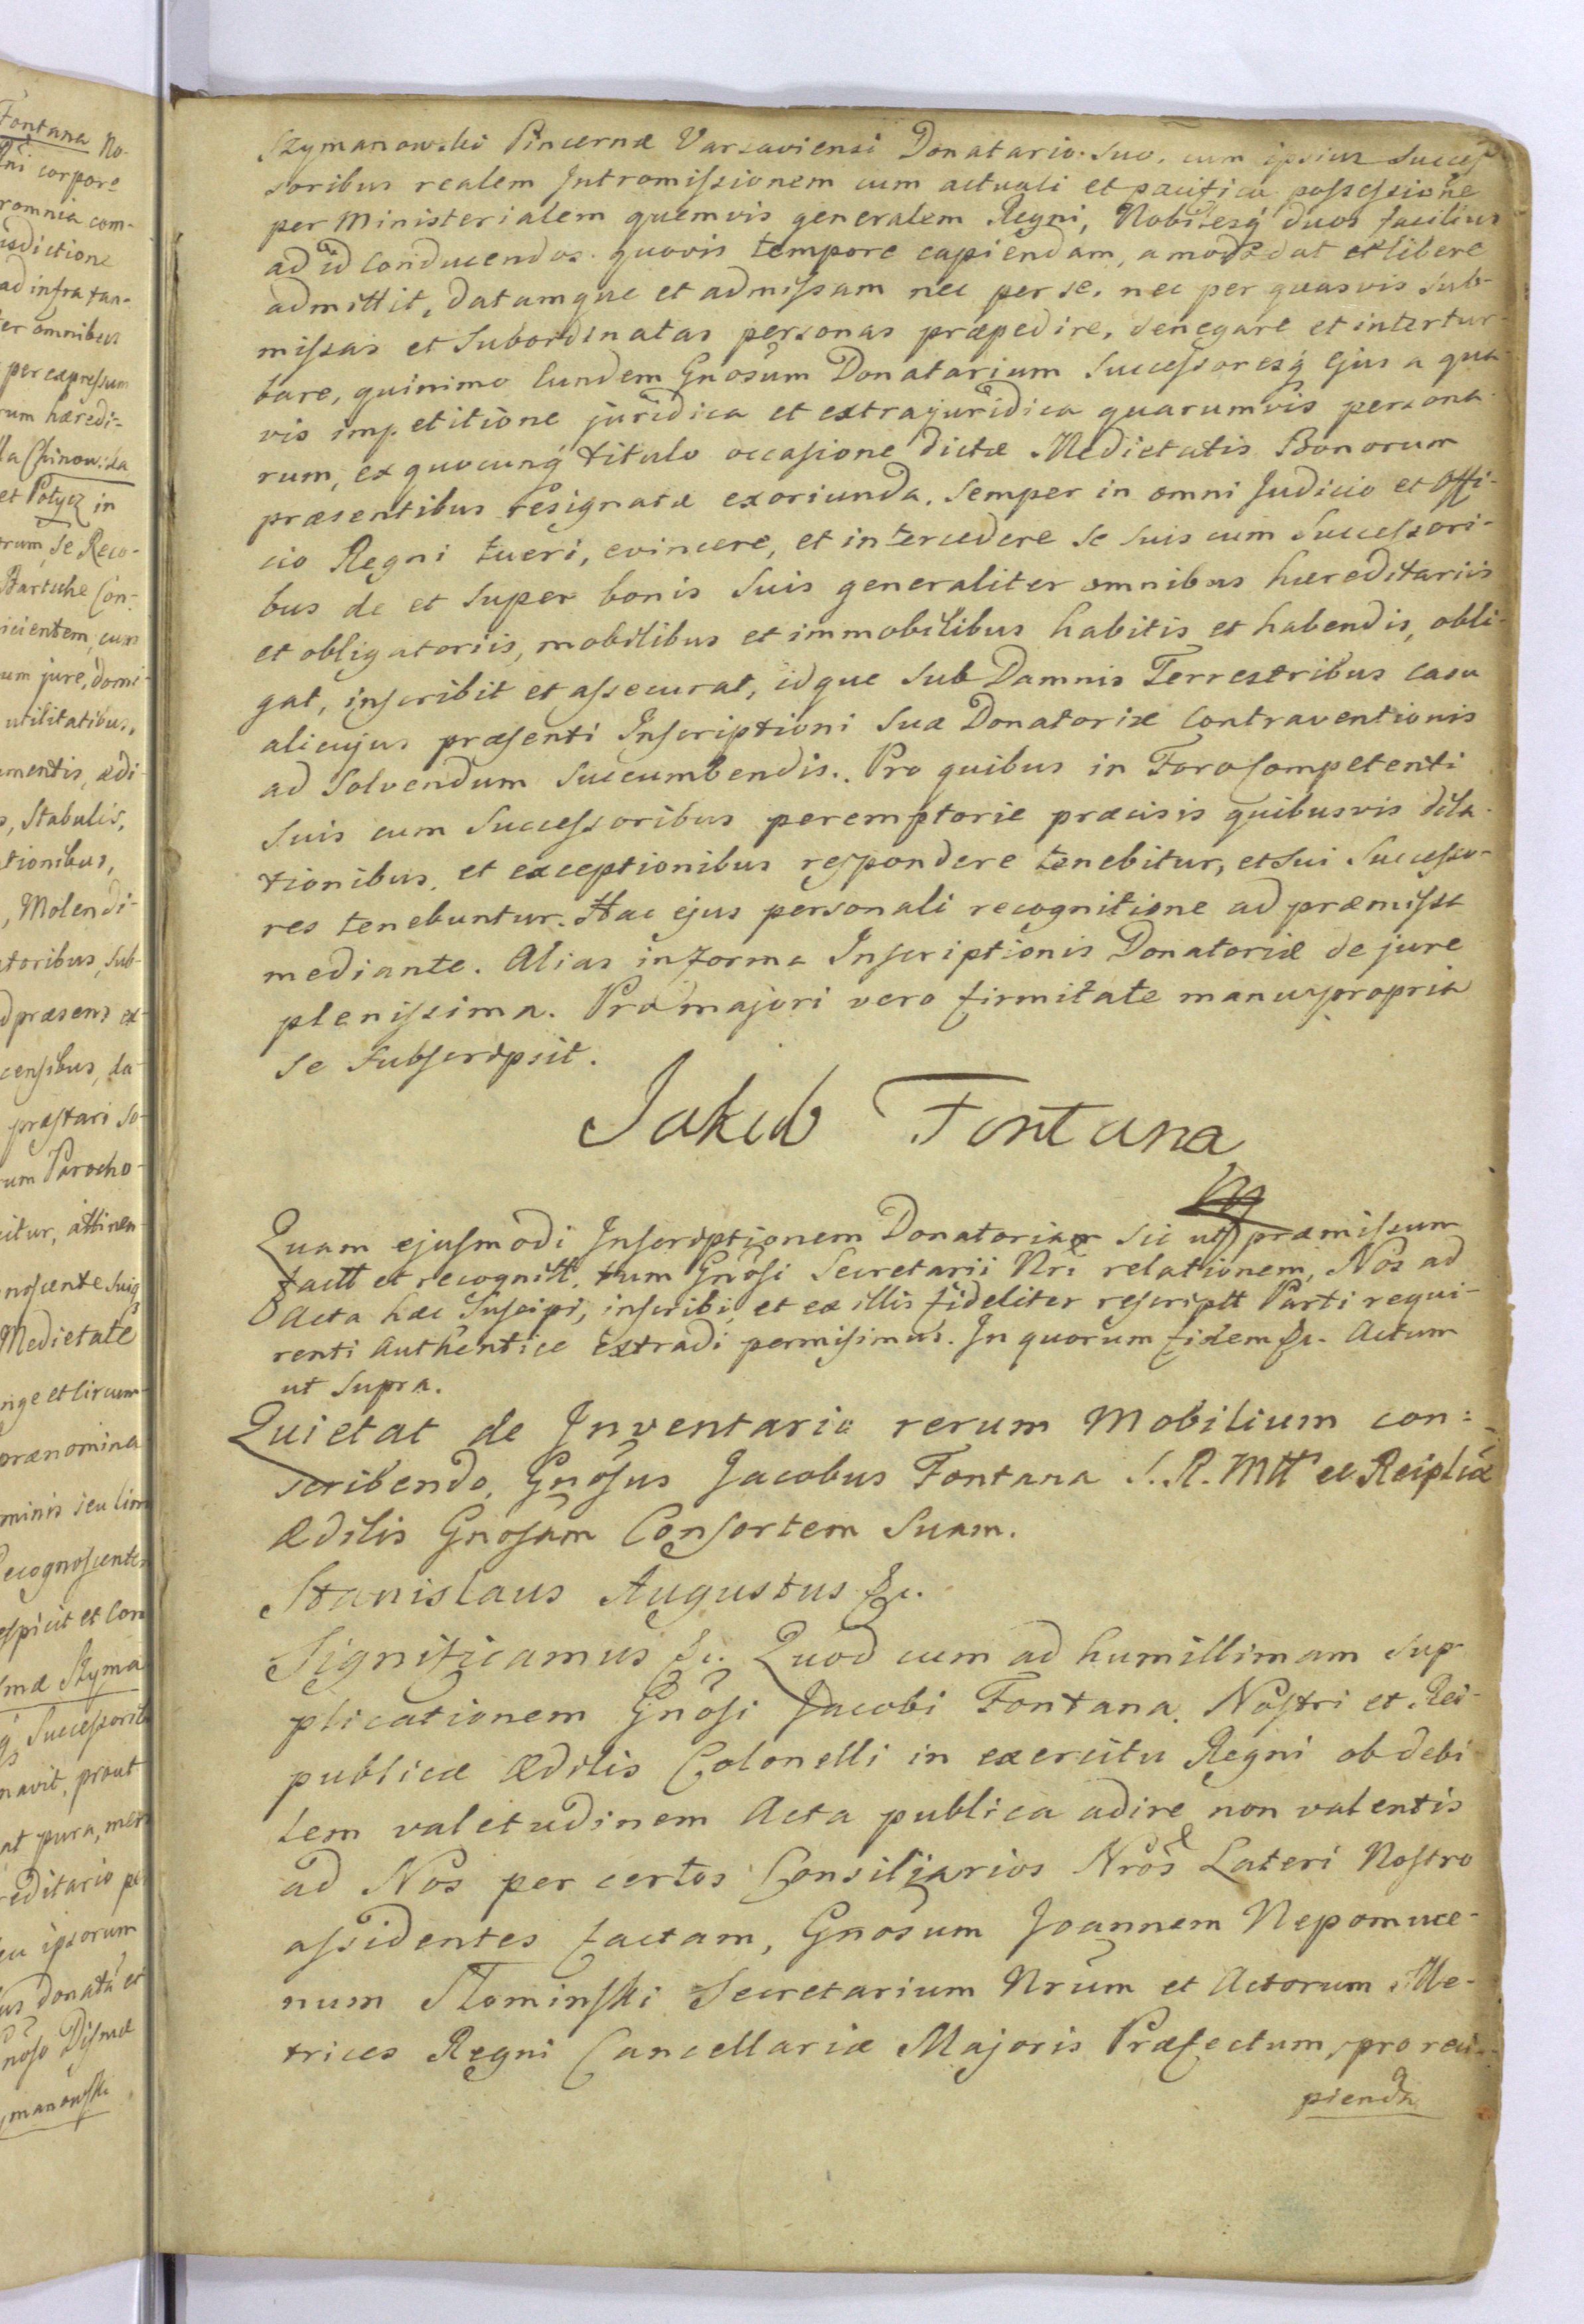 Fontana No-
corpore
romnia com-
isdictione
ad infra tan-
ter omnibus
per expressum
rum hæredi-
et Potycz in
trum, se Reco-
Bartche Con-
icientem, cum
um jure, domi-
utilitatibus,
mentis, ædi-
s, Stabulis,
tionibus,
, Molendi-
toribus, sub-
præsens ex-
censibus, da-
præstari so-
um Parocho-
citur, attinen-
noscente Suisq
Medietate
nge et circum-
prænomina
minis seu lim
Recognoscente
spicit et con
smæ Szyma
q Successorib
navit, prout
at pura, mer
reditario pe
eu ipsorum
us donatũ et
noso Dismæ
ymanowski
Szymanowski Pincernæ Varsaviensi Donatario suo, cum ipsius Succes-
soribus realem Intromissionem cum actuali et pacifica possessione
per Ministerialem quemvis generalem Regni, Nobilesq duos facilius
ad id conducendos quovis tempore capiendam, a modo dat et libere
admittit, datamque et admissam nec per se, nec per quasvis sub-
missas et subordinatas personas præpedire, denegare et intertur-
bare, quinimo Eundem Gnosum Donatarium Successoresq ejus a qua-
vis impetitione juridica et extrajuridica quarumvis persona-
rum, ex quocunq titulo occasione dictæ Medietatis Bonorum
præsentibus resignatæ exoriunda, semper in omni Judicio et Offi-
cio Regni tueri, evincere, et intercedere se suis cum Successori-
bus de et super bonis suis generaliter omnibus hæreditariis
et obligatoriis, mobilibus et immobilibus habitis et habendis, obli-
gat, inscribit et assecurat, idque sub Damnis Terrestribus casu
alicujus præsenti Inscriptioni suæ Donatoriæ contraventionis
ad solvendum succumbendis. Pro quibus in Foro Competenti
suis cum Successoribus peremptorie præcisis quibusvis dila-
tionibus, et exceptionibus respondere tenebitur, et sui Successo-
res tenebuntur. Hac ejus personali recognitione ad præmissa
mediante. Alias in forma Inscriptionis Donatoriæ de jure
plenissima. Pro majori vero firmitate manu propria
se subscripsit.
Jakub Fontana
Quam ejusmodi Inscriptionem Donatoriam sic ut præmissum
factt et recognitt. tum Gnosi Secretarii Nri relationem, Nos ad
Acta hæc suscipi, inscribi, et ex illis fideliter rescriptt Parti requi-
renti Authentice extradi permisimus. In quorum fidem &c. Actum
ut supra.
Quietat de Inventario rerum Mobilium con=
scribendo, Gnosus Jacobus Fontana S. R. Mtt et Reiplicæ
Ædilis Gnosam Consortem Suam.
Stanislaus Augustus &c.
Significamus &c. Quod cum ad humillimam sup
plicationem Gnosi Jacobi Fontana, Nostri et Rei-
publicæ Ædilis Colonelli in exercitu Regni ob debi
lem valetudinem Acta publica adire non valentis
ad Nos per certos Consiliarios Nros Lateri Nostro
assidentes factam, Gnosum Joannem Nepomuce-
num Słominski Secretarium Nrum et Actorum Me-
trices Regni Cancellariæ Majoris Præfectum, pro reci-
pienda